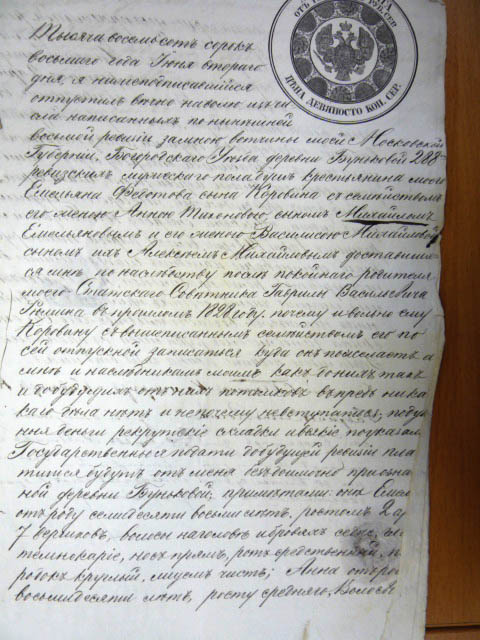 ЦѢНА ДЕВЯНОСТО КОП. СЕР.
Тысяча восемьсотъ сорокъ
восьмаго года Іюня втораго
дня, я нижеподписавшійся
отпустилъ вѣчно на волю изъ чи
сла написанныхъ по нынѣшней
восьмой ревизіи за мною вотчины моей Московской
Губерніи, Богородскаго Уѣзда деревни Буньковой 288
ревизскихъ мужеска пола душъ крестьянина моего
Емельяна Федотова сына Коровина съ семействомъ
его женою Анною Тихоновою, сыномъ Михайломъ
Емельяновымъ и его женою Василисою Михайловой
сыномъ ихъ Алексѣемъ Михайловымъ доставших
ся мнѣ по наслѣдству послѣ покойнаго родителя
моего Статскаго Совѣтника Гаврилы Васильевича
въ прошломъ 1828 году. почему и воленъ ему
Коровину съ вышеписаннымъ семействомъ его по
сей отпускной записаться куда онъ пожелаетъ а
мнѣ и наслѣдникамъ моимъ какъ до нихъ такъ
и до будущихъ отъ нихъ потомковъ впредь ника
каго дѣла нѣтъ и ни почему не вступаться, поду
шныя деньги рекрутскіе складки и всякіе по указамъ
Государственныя подати до будущей ревизіи пла
титься будутъ отъ меня бездоимочно при означен
ной деревни Буньковой, примѣтами: онъ Емел
отъ роду семидесяти восьми лѣтъ, ростомъ 2 ар
7 вершковъ, волосы на головѣ и бровяхъ сѣдые,
темнокаріе, носъ прямъ, ротъ средственный,
родокъ круглый, лицомъ чистъ; Анна отъ роду
восьмидесяти лѣтъ, росту средняго, Волосы